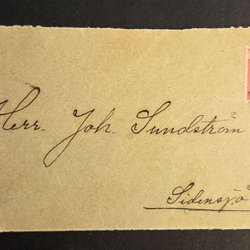 Herr. Joh. Sundström
Sidensjö